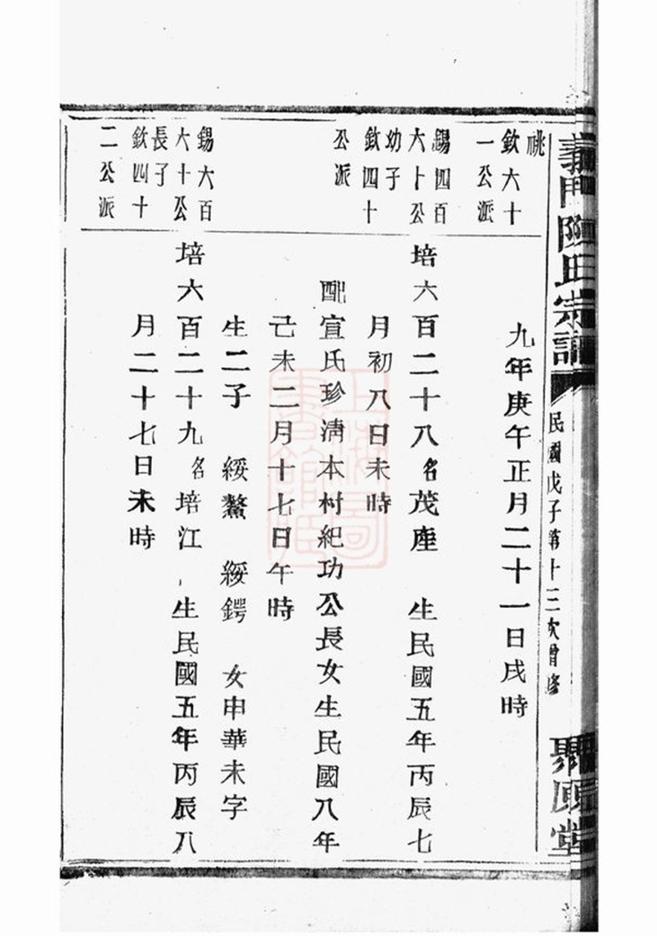 義門陳氏宗譜
民國戊子第十三次增修
聚原堂
祧
欽六十
一公派
九年庚午正月二十一日戌時
錫四百
六十公
幼子
欽四十
公派
培六百二十八名茂產 生民國五年丙辰七
月初八日未時
配宣氏珍清本村紀功公長女生民國八年
己未二月十七日午時
生二子 綏鰲 綏鍔 女申華未字
錫六百
六十公
長子
欽四十
二公派
培六百二十九名培江 生民國五年丙辰八
月二十七日未時
上海圖
書館藏